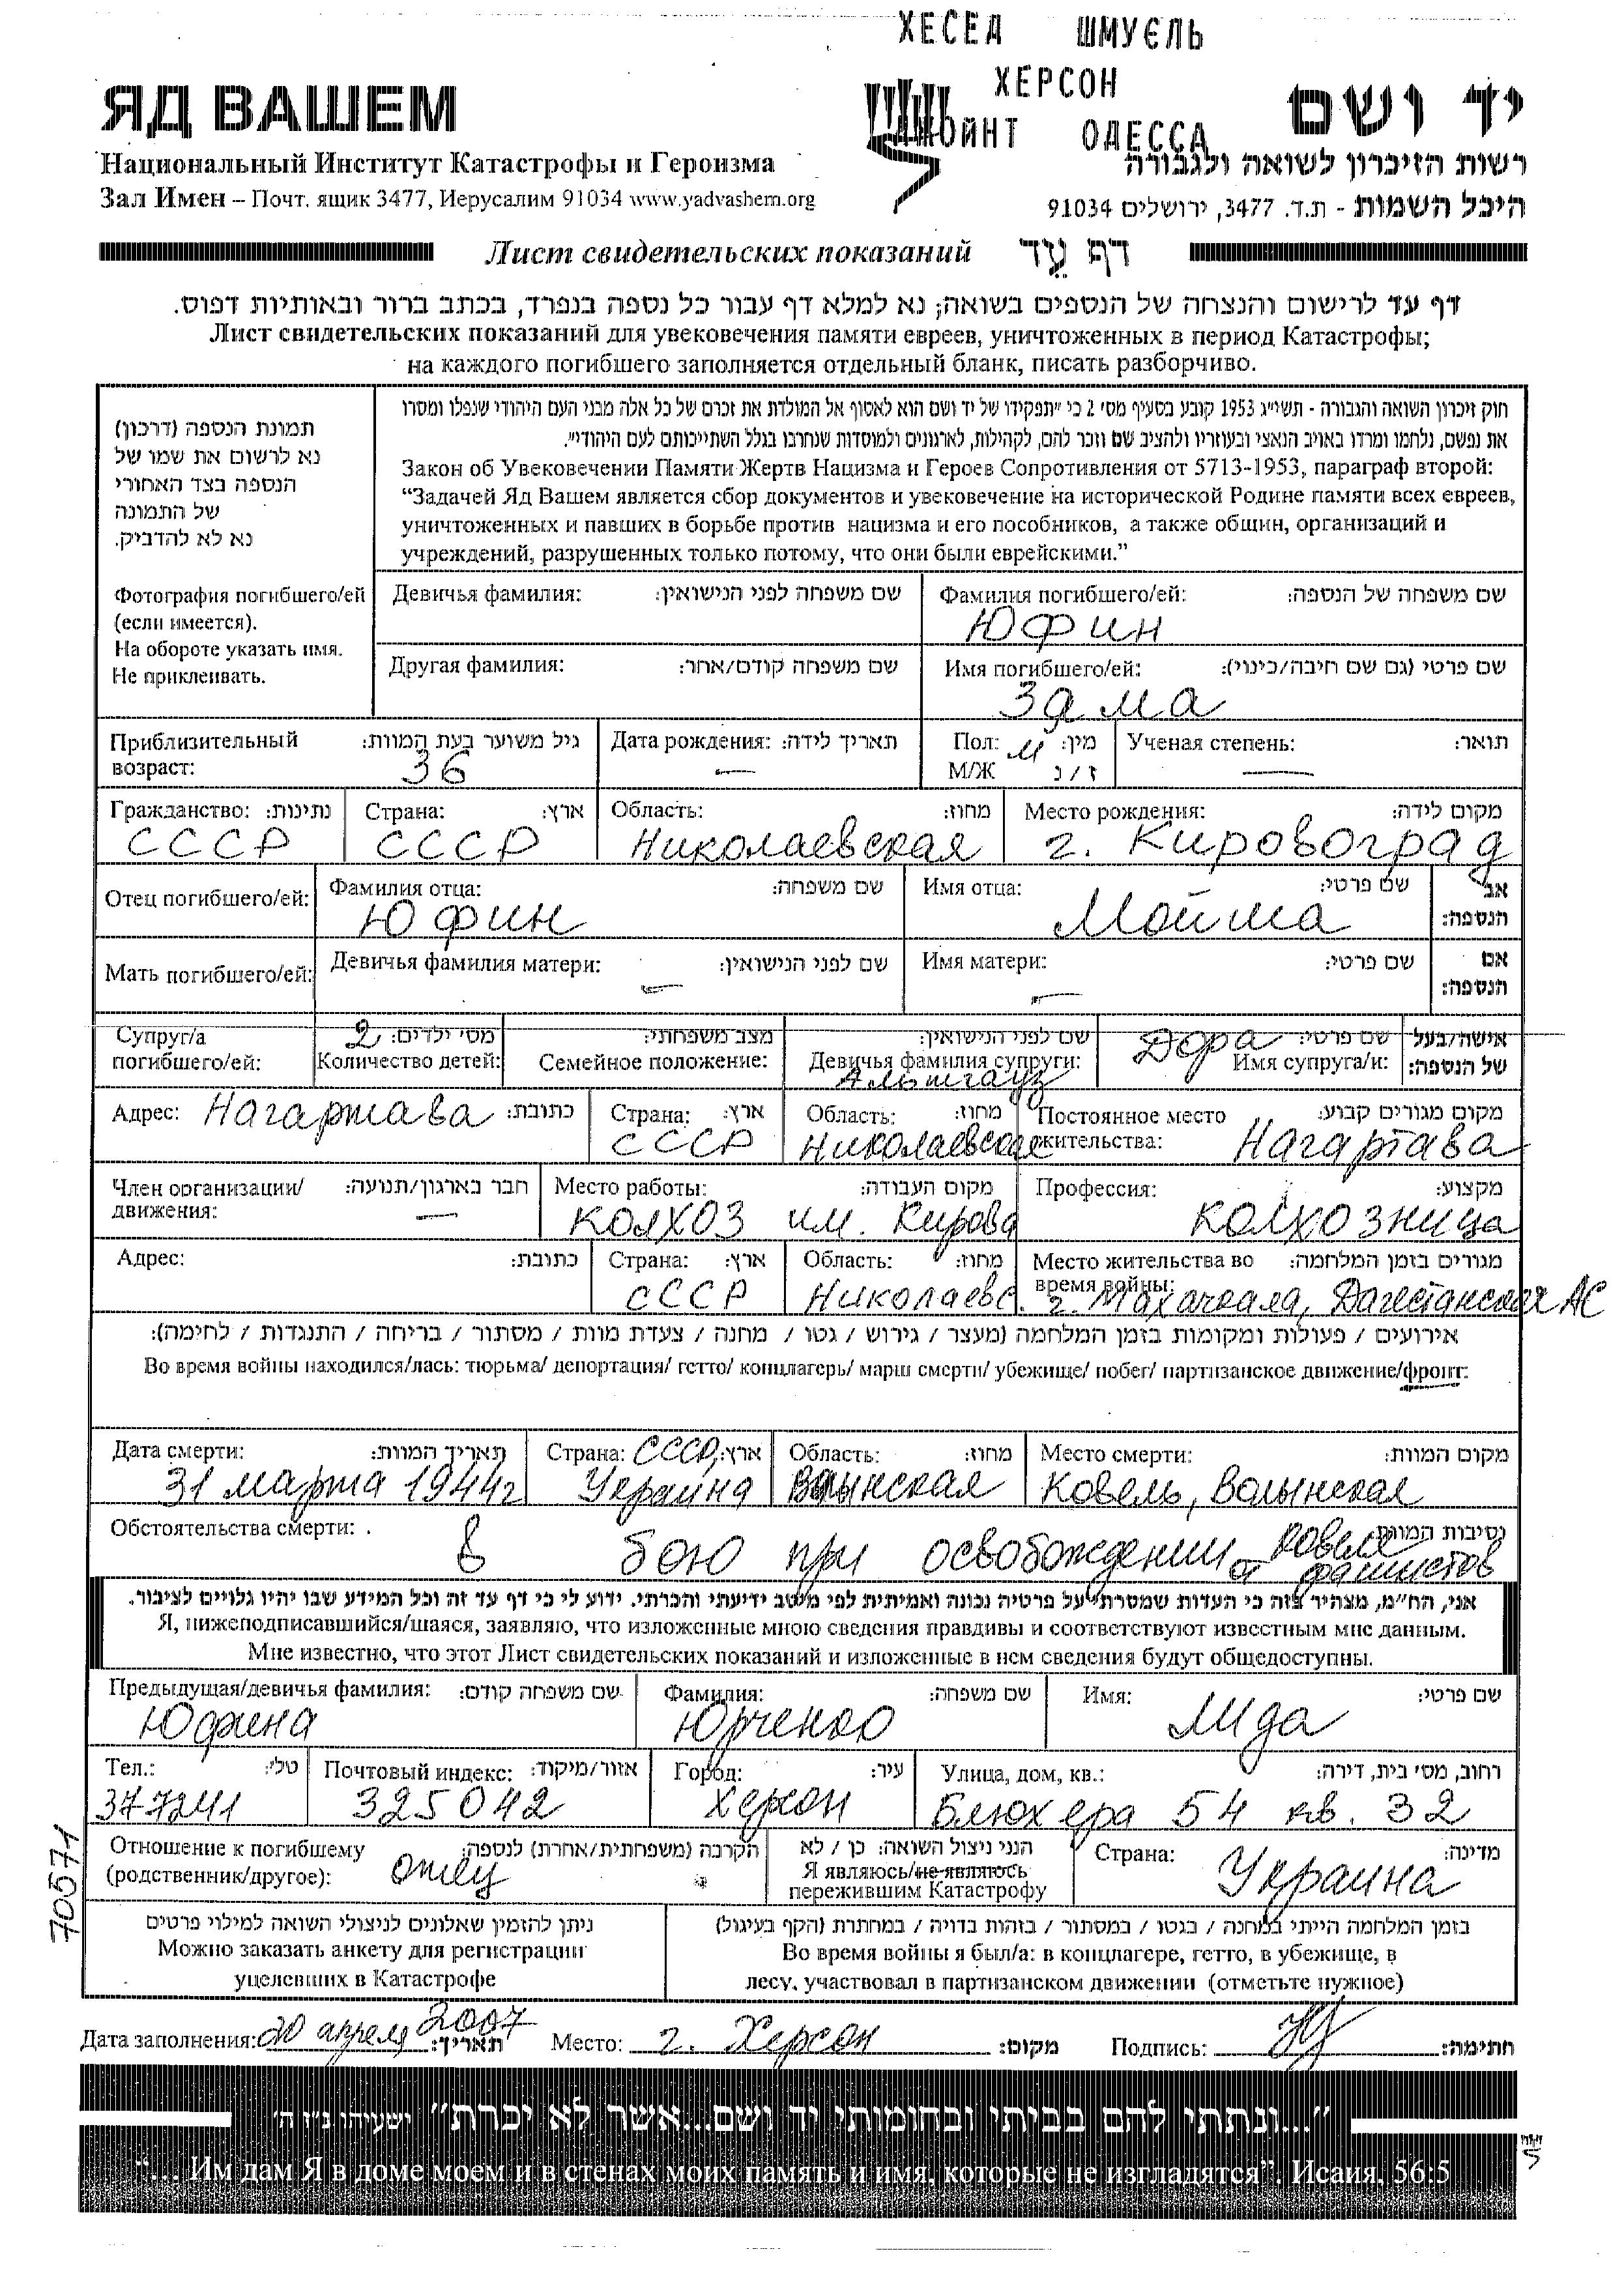 ХЕСЕД ШМУЄЛЬ
ХЕРСОН
ДЖОЙНТ ОДЕССА
ЯД ВАШЕМ
יד ושם
Национальный Институт Катастрофы и Героизма
רשות הזיכרון לשואה ולגבורה
Зал Имен – Почт. ящик 3477, Иерусалим 91034 www.yadvashem.org
היכל השמות - ת.ד. 3477, ירושלים 91034
Лист свидетельских показаний דף עד
דף עד לרישום והנצחה של הנספים בשואה; נא למלא דף עבור כל נספה בנפרד, בכתב ברור ובאותיות דפוס.
Лист свидетельских показаний для увековечения памяти евреев, уничтоженных в период Катастрофы;
на каждого погибшего заполняется отдельный бланк, писать разборчиво.
תמונת הנספה (דרכון)
נא לרשום את שמו של
הנספה בצד האחורי
של התמונה
נא לא להדביק.
Фотография погибшего/ей
(если имеется).
На обороте указать имя.
Не приклеивать.
חוק זיכרון השואה והגבורה - תשי״ג 1953 קובע בסעיף מס׳ 2 כי ״תפקידו של יד ושם הוא לאסוף אל המולדת את זכרם של כל אלה מבני העם היהודי שנפלו ומסרו
את נפשם, נלחמו ומרדו באויב הנאצי ובעוזריו ולהציב שם וזכר להם, לקהילות, לארגונים ולמוסדות שנחרבו בגלל השתייכותם לעם היהודי״.
Закон об Увековечении Памяти Жертв Нацизма и Героев Сопротивления от 5713-1953, параграф второй:
“Задачей Яд Вашем является сбор документов и увековечение на исторической Родине памяти всех евреев,
уничтоженных и павших в борьбе против нацизма и его пособников, а также общин, организаций и
учреждений, разрушенных только потому, что они были еврейскими.”
Девичья фамилия: שם משפחה לפני הנישואין:
Фамилия погибшего/ей: שם משפחה של הנספה:
Юфин
Другая фамилия: שם משפחה קודם/אחר:
Имя погибшего/ей: שם פרטי (גם שם חיבה/כינוי):
Зама
Приблизительный возраст: גיל משוער בעת המוות:
36
Дата рождения: תאריך לידה:
—
Пол: М/Ж מין: ז / נ
м
Ученая степень: תואר:
—
Гражданство: נתינות:
СССР
Страна: ארץ:
СССР
Область: מחוז:
Николаевская
Место рождения: מקום לידה:
г. Кировоград
Отец погибшего/ей:
Фамилия отца: שם משפחה:
Юфин
Имя отца: שם פרטי:
Мойша
אב הנספה:
Мать погибшего/ей:
Девичья фамилия матери: שם לפני הנישואין:
—
Имя матери: שם פרטי:
—
אם הנספה:
Супруг/а погибшего/ей:
מס׳ ילדים: 2
Количество детей:
מצב משפחתי:
Семейное положение:
שם לפני הנישואין:
Девичья фамилия супруги:
Альтгауз
Дора שם פרטי:
Имя супруга/и:
אישה/בעל של הנספה:
Адрес: Нагартава כתובת:
Страна: ארץ:
СССР
Область: מחוז:
Николаевская
Постоянное место жительства: מקום מגורים קבוע:
Нагартава
Член организации/ движения: חבר בארגון/תנועה:
—
Место работы: מקום העבודה:
колхоз им. Кирова
Профессия: מקצוע:
колхозница
Адрес: כתובת:
Страна: ארץ:
СССР
Область: מחוז:
Николаевс.
Место жительства во время войны: מגורים בזמן המלחמה:
г. Махачкала, Дагестанская АС
אירועים / פעולות ומקומות בזמן המלחמה (מעצר / גירוש / גטו / מחנה / צעדת מוות / מסתור / בריחה / התנגדות / לחימה):
Во время войны находился/лась: тюрьма/ депортация/ гетто/ концлагерь/ марш смерти/ убежище/ побег/ партизанское движение/фронт:
Дата смерти: תאריך המוות:
31 марта 1944г
Страна: СССР, ארץ:
Украина
Область: מחוז:
Волынская
Место смерти: מקום המוות:
Ковель, Волынская
Обстоятельства смерти: נסיבות המוות:
в бою при освобождении Ковеля
от фашистов
אני, הח״מ, מצהיר בזה כי העדות שמסרתי על פרטיה נכונה ואמיתית לפי מיטב ידיעתי והכרתי. ידוע לי כי דף עד זה וכל המידע שבו יהיו גלויים לציבור.
Я, нижеподписавшийся/шаяся, заявляю, что изложенные мною сведения правдивы и соответствуют известным мне данным.
Мне известно, что этот Лист свидетельских показаний и изложенные в нем сведения будут общедоступны.
Предыдущая/девичья фамилия: שם משפחה קודם:
Юфина
Фамилия: שם משפחה:
Юрченко
Имя: שם פרטי:
Лида
Тел.: טל׳:
377241
Почтовый индекс: אזור/מיקוד:
325042
Город: עיר:
Херсон
Улица, дом, кв.: רחוב, מס׳ בית, דירה:
Блюхера 54 кв. 32
Отношение к погибшему (родственник/другое): הקרבה (משפחתית/אחרת) לנספה:
отец
הנני ניצול השואה: כן / לא
Я являюсь/не являюсь
пережившим Катастрофу
Страна: מדינה:
Украина
70571
ניתן להזמין שאלונים לניצולי השואה למילוי פרטים
Можно заказать анкету для регистрации
уцелевших в Катастрофе
בזמן המלחמה הייתי במחנה / בגטו / במסתור / בזהות בדויה / במחתרת (הקף בעיגול)
Во время войны я был/а: в концлагере, гетто, в убежище, в
лесу, участвовал в партизанском движении (отметьте нужное)
Дата заполнения: 20 апреля 2007 תאריך: Место: г. Херсон מקום: Подпись: חתימה:
״...ונתתי להם בביתי ובחומותי יד ושם...אשר לא יכרת״ ישעיהו נ״ו ה׳
“… Им дам Я в доме моем и в стенах моих память и имя, которые не изгладятся”. Исаия, 56:5